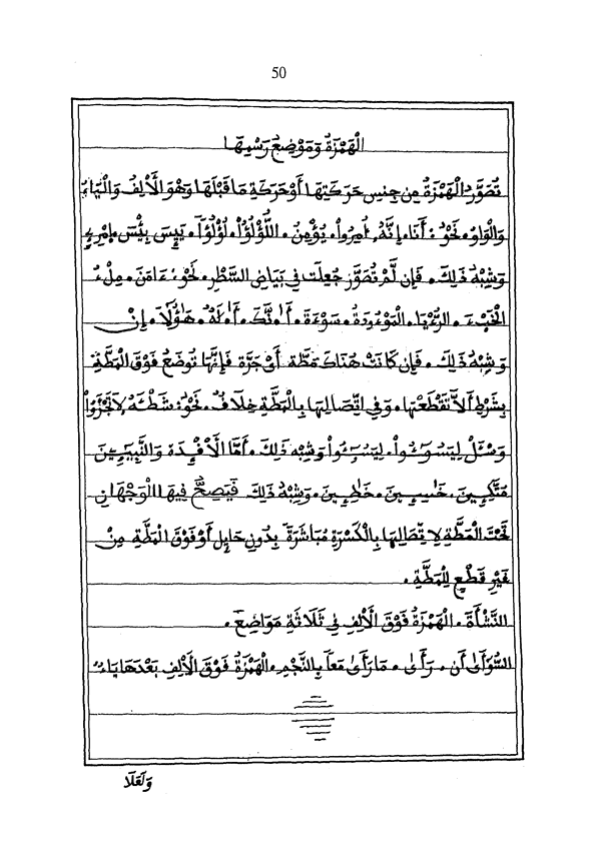 50
الْهَمْزَةُ وَمَوْضِعُ رَسْمِهَا
تُصَوَّرُ الْهَمْزَةُ مِن جِنسِ حَرَكَتِهَا أَوْ حَرَكَةِ مَا قَبْلَهَا وَهْوَ الْأَلِفُ وَالْيَاءُ
وَالْوَاوُ. نَحْوُ: أَنَا. إِنَّهُ. اُمِرُواْ. يُؤْمِنُ. اللُّؤْلُؤُاْ. لُؤْلُؤاً. يَئِسَ بِئْسَ اِمْرِئٍ
وَشِبْهُ ذَلِكَ. فَإِن لَّمْ تُصَوَّرْ جُعِلَتْ فِي بَيَاضِ السَّطْرِ. نَحْوُ ءَامَنَ. مِلْءُ
الْخَبْءَ. الرُّءْيَا. الْمَوْءُودَةُ. سَوْءَةَ. أَاٰنَّكَ. أَاٰلَهٌ. هَٰؤُلَآ. إِنْ
وَشِبْهُ ذَلِكَ. فَإِن كَانَتْ هُنَاكَ مَطَّة أَوْ جَرَّة فَإِنَّهَا تُوضَعُ فَوْقَ الْمَطَّةِ
بِشَرْطِ أَلَّا تَقْطَعَهَا. وَفِي اتِّصَالِهَا بِالْمَطَّةِ خِلَافٌ. نَحْوُ: شَطْـَٔهُ لَا تَجْـَٔرُواْ
وَسْـَٔلْ لِيَسُـُٔواْ. لِيَسُـُٔواْ وَشِبْه ذَلِكَ. أَمَّا الْأَفْـِٕدَة وَالنَّبِيـِٕينَ
مُتَّكِـِٕينَ. خَٰسِـِٕينَ. خَٰطِـِٕينَ. وَشِبْهُ ذَلِكَ فَيَصِحُّ فِيهَا الْوَجْهَانِ
تَحْتَ الْمَطَّةِ لِاتِّصَالِهَا بِالْكَسْرَةِ مُبَاشَرَةً بِدُونِ حَايِلٍ أَوْ فَوْقَ الْمَطَّةِ مِنْ
غَيْرِ قَطْعٍ لِلْمَطَّةِ.
النَّشْأَةَ. الْهَمْزَةُ فَوْقَ الْأَلِفِ فِي ثَلَاثَةِ مَوَاضِعَ.
السُّوأَىٰ أَن. رَأَىٰ. مَا رَأَىٰ مَعاً بِالنَّجْمِ. الْهَمْزَةُ فَوْقَ الْأَلِفِ بَعْدَهَا يَاءٌ
وَلَعَلَا